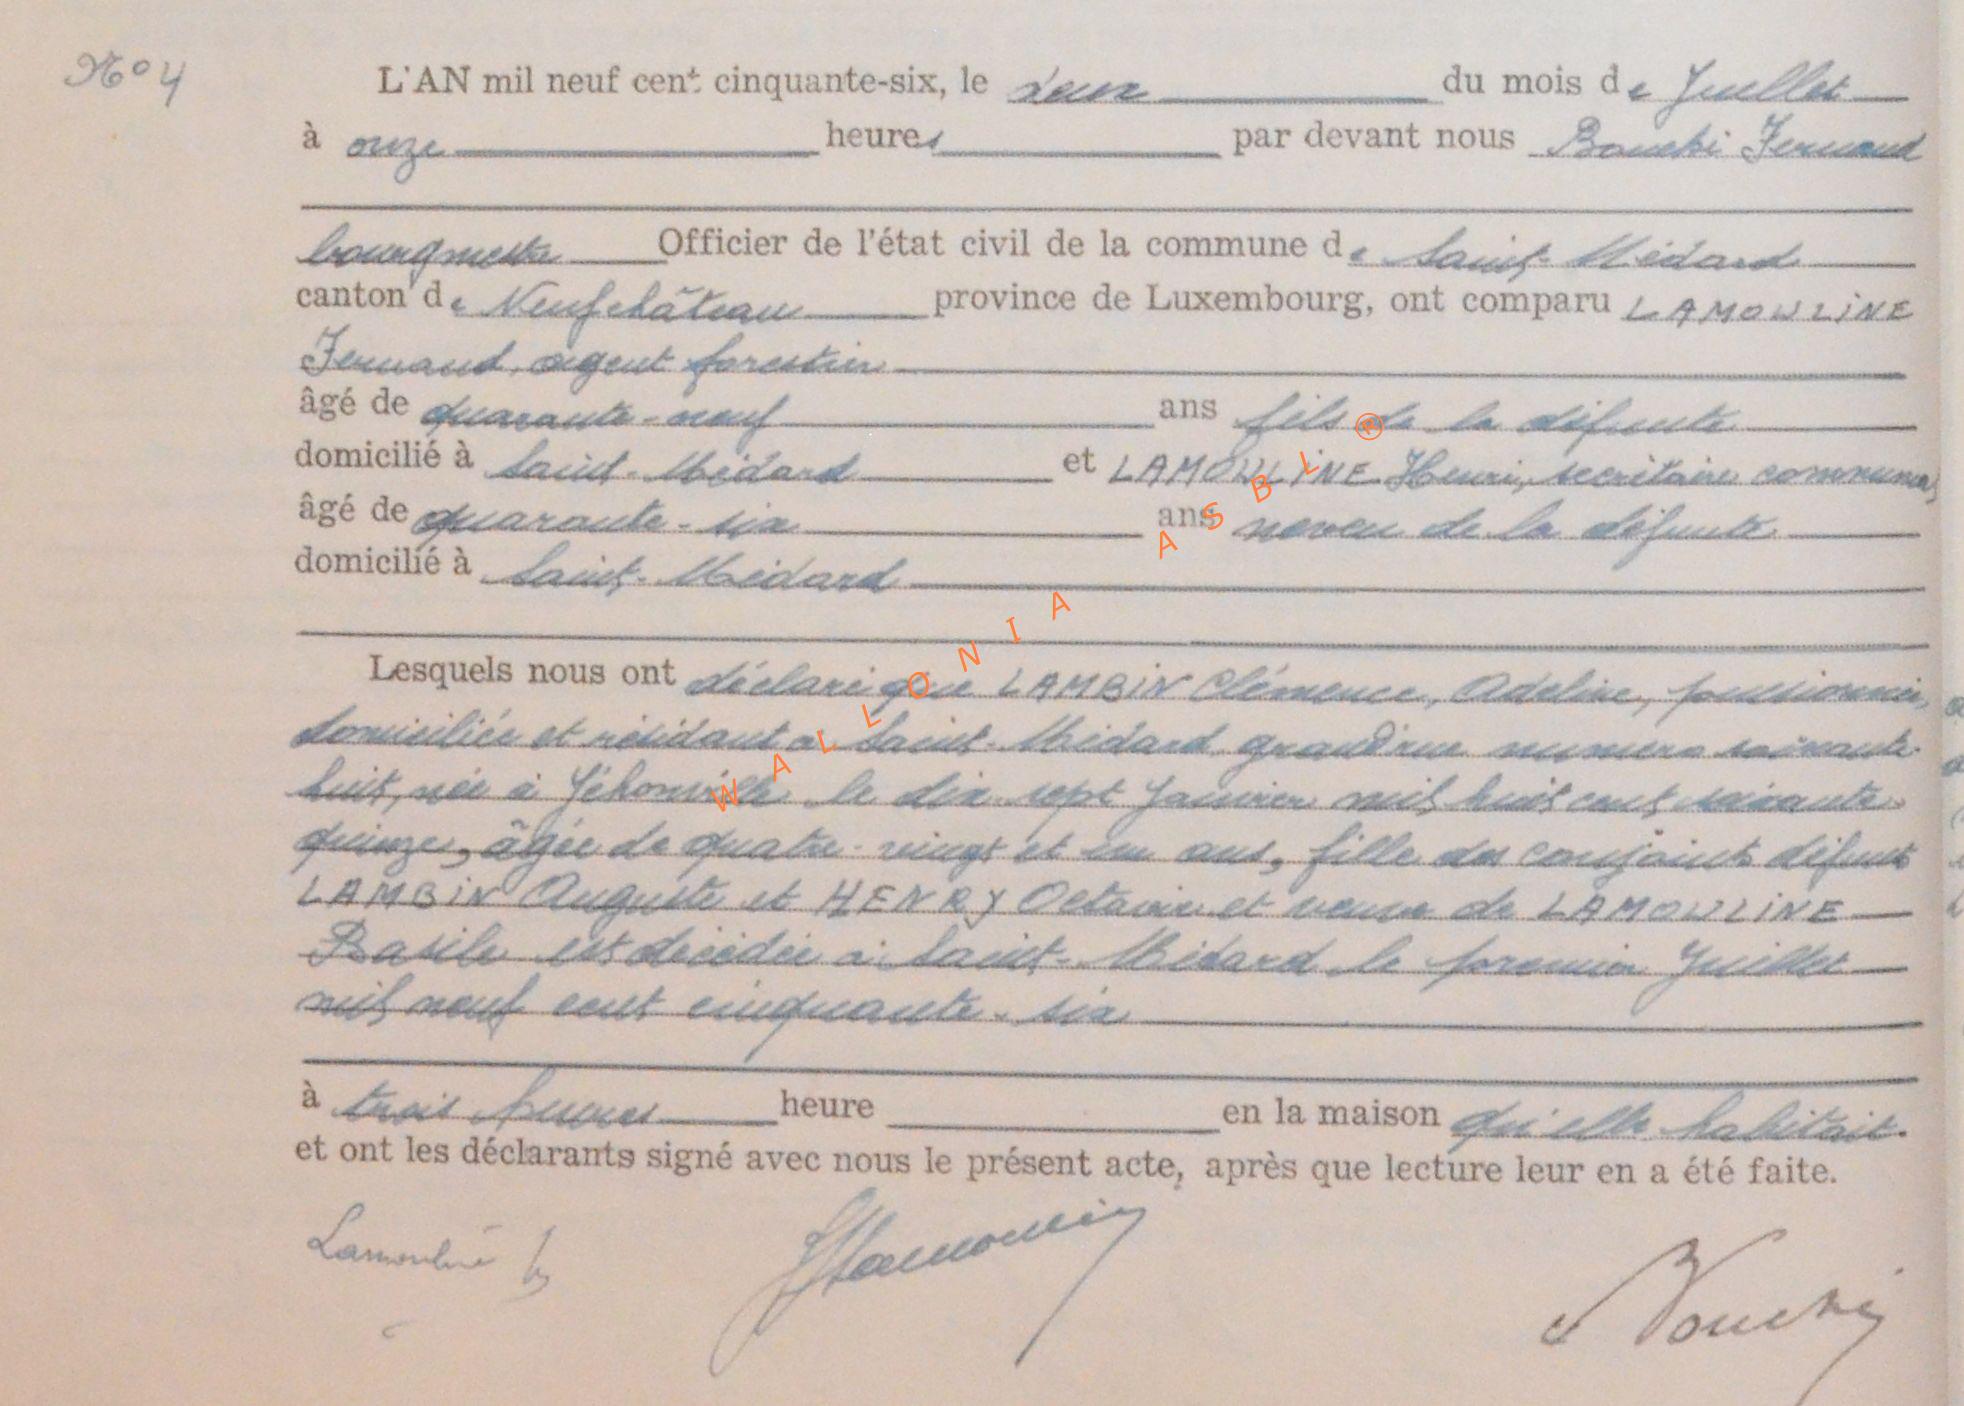 N° 4
L'AN mil neuf cent cinquante-six, le deux du mois de Juillet
à onze heures par devant nous Bouchi Fernand
bourgmestre Officier de l'état civil de la commune de Saint-Médard
canton de Neufchâteau province de Luxembourg, ont comparu LAMOULINE
Fernand, agent forestier
âgé de quarante-neuf ans fils de la défunte
domicilié à Saint-Médard et LAMOULINE Henri, secrétaire communal
âgé de quarante-six ans neveu de la défunte
domicilié à Saint-Médard
Lesquels nous ont déclaré que LAMBIN Clémence, Adeline, pensionnée,
domiciliée et résidant à Saint-Médard grand'rue numéro soixante-
huit, née à Jéhonville le dix-sept Janvier mil huit cent soixante-
quinze, âgée de quatre-vingt et un ans, fille des conjoints défunts
LAMBIN Auguste et HENRY Octavie et veuve de LAMOULINE
Basile est décédée à Saint-Médard le premier Juillet
mil neuf cent cinquante-six
à trois heures heure en la maison qu'elle habitait.
et ont les déclarants signé avec nous le présent acte, après que lecture leur en a été faite.
Lamouline HLamouline Bouchi
WALLONIA ASBL ®